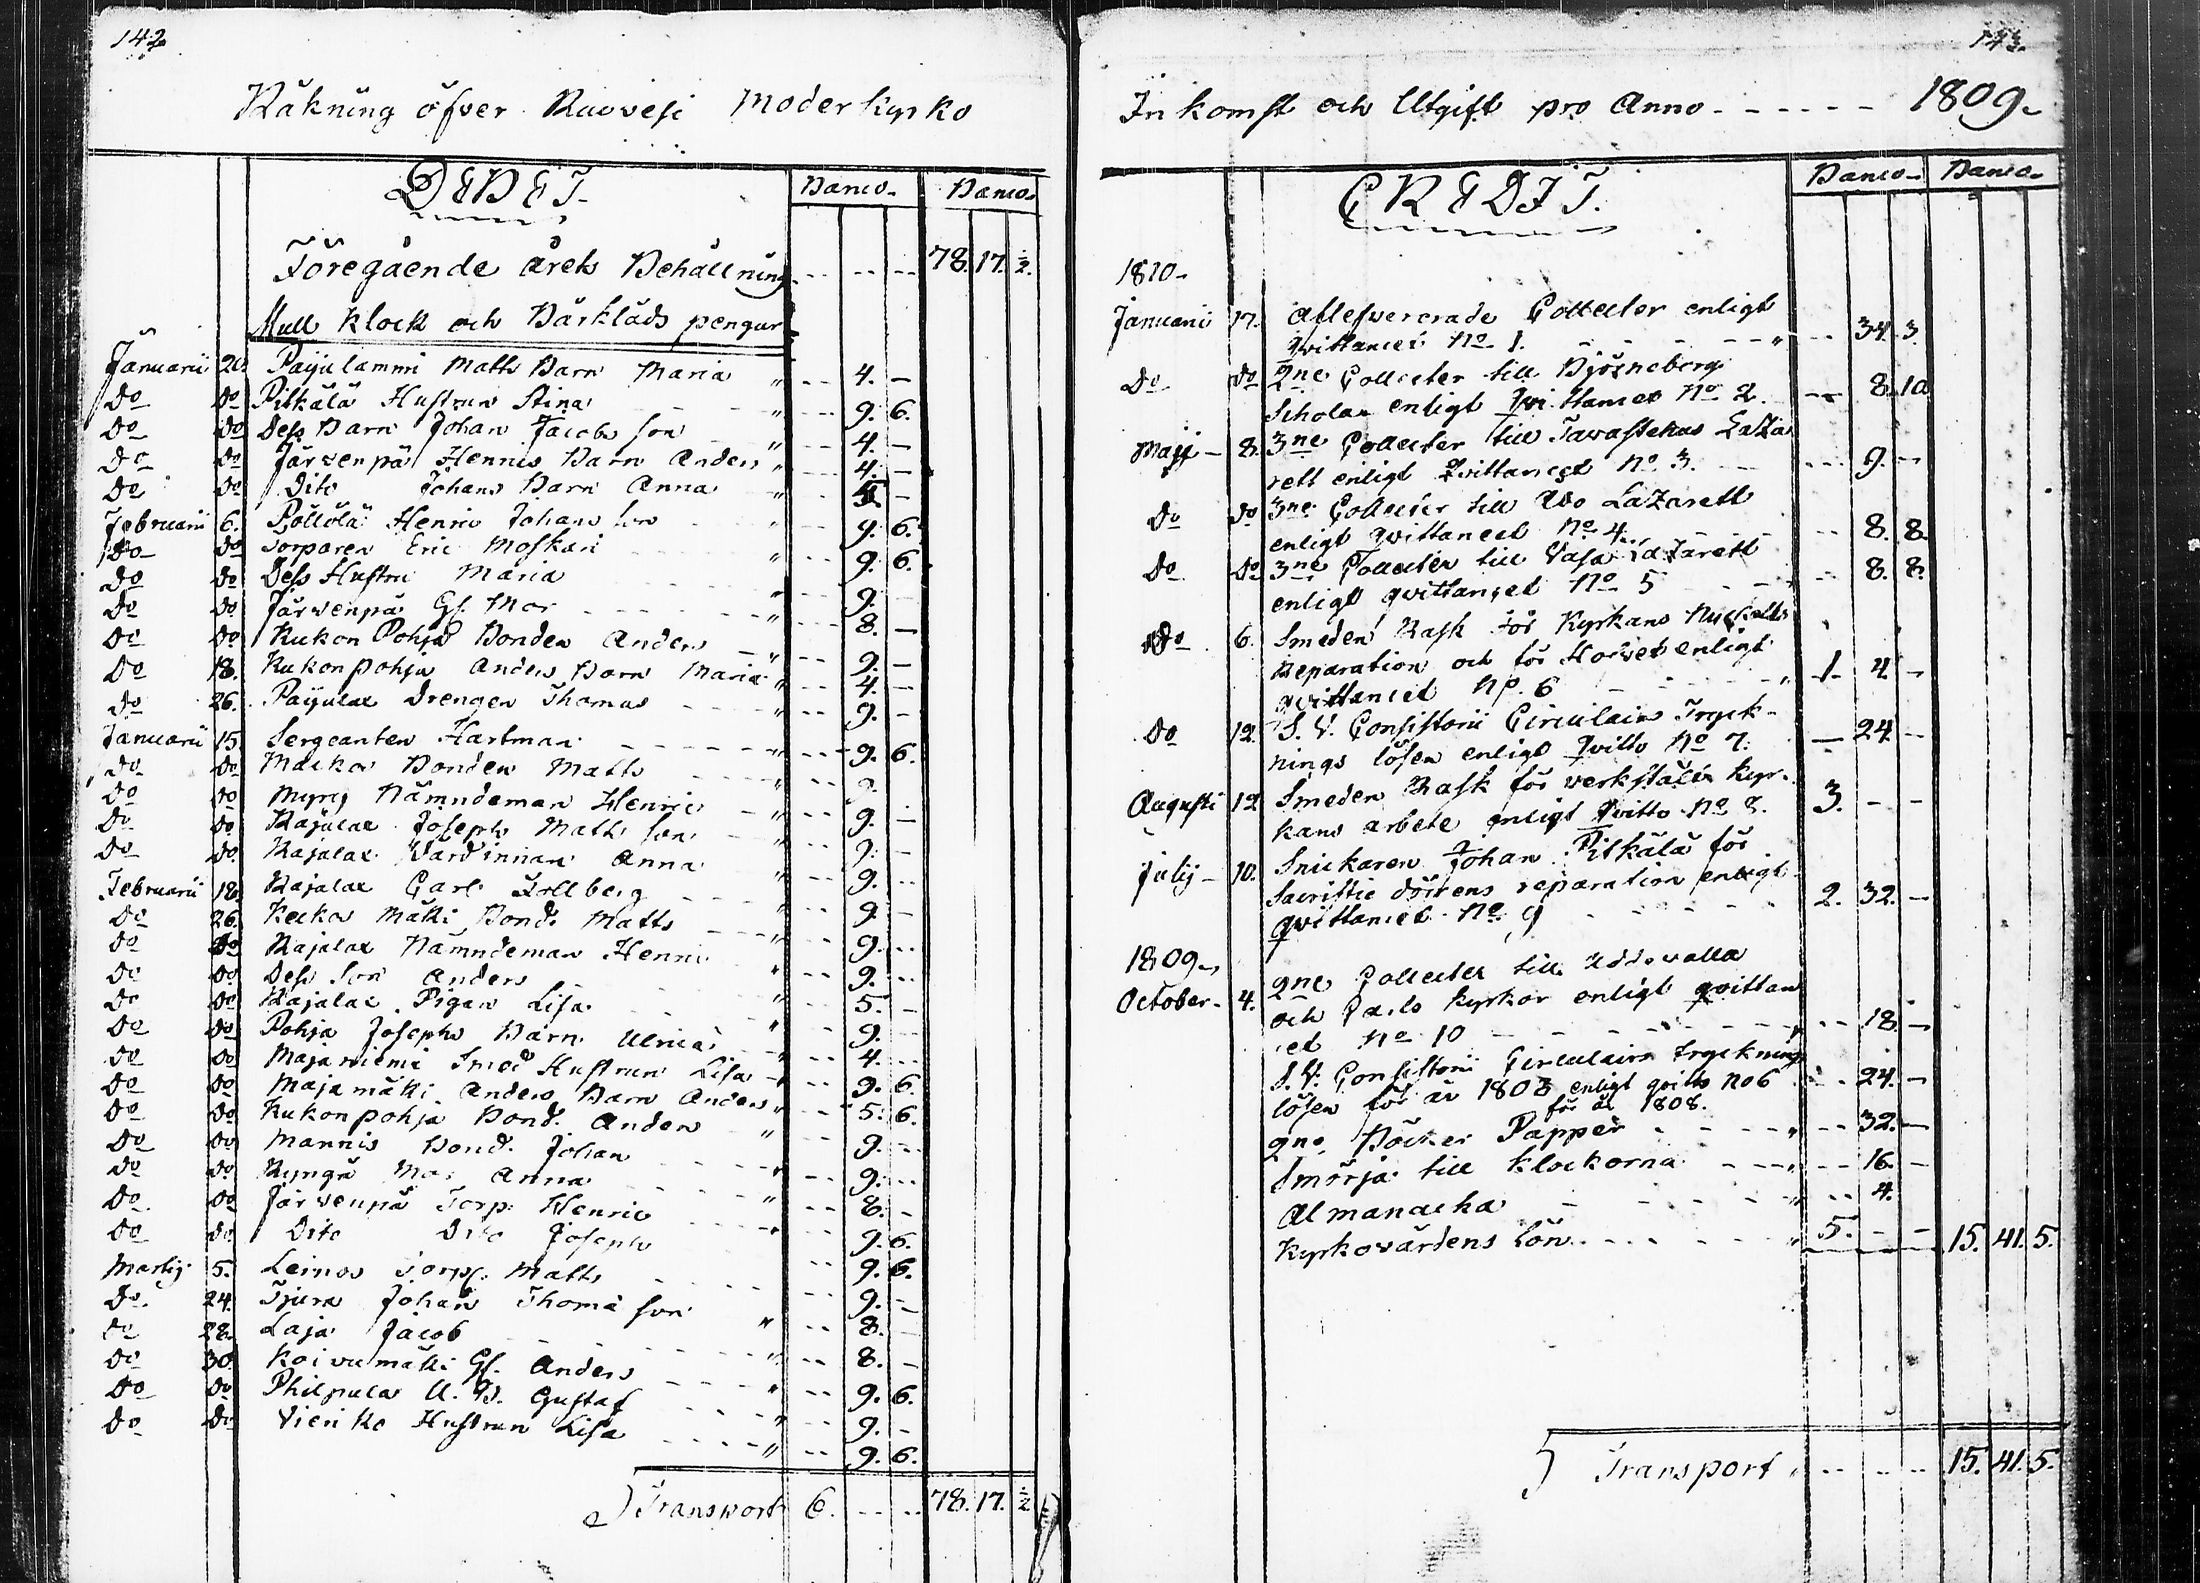 142
Räkning öfver Ruovesi Moderkyrko
DEBET.
Banco. Banco.
Föregående årets Behållning 78. 17. ½.
Mull Klock och Bårkläds pengar
Januarii 20. Pajulammi Matts Barn Maria " 4. —
Do Do Pitkälä Hustrun Stina " 9. 6.
Do Do Dess Barn Johan Jacobs son " 4. —
Do Do Järwenpä Hennes Barn Anders " 4. —
Do Do Dito Johans Barn Anna " —
Februarii 6. Henric Johans son " 9. 6.
Do Do Torparen Eric Moskari " 9. 6.
Do Do Dess Hustru Maria " 9.
Do Do Järwenpä Gl. Mor " 8. —
Do Do Rukon Pohja Bonden Anders " 9. —
Do 18. Rukonpohja Anders Barn Maria " 4. —
Do 26. Drengen Thomas " 9. —
Januarii 15. Sergeanten Hartman " 9. 6.
Do Do Bonden Matts " 9.
Do Do Nämndeman Henric 9. —
Do Do Joseph Matts son 9. —
Do Do Wärdinnan Anna " 9. —
Februarii 18. Carl 9. —
Do 26. Bond. Matts " 9. —
Do Do Nämndeman Henric 9. —
Do Do Dess Son Anders " 5. —
Do Do Pigan Lisa 9. —
Do Do Pohja Josephs Barn Ulrica " 4. —
Do Do Majaniemi Smed Hustrun Lisa " 9. 6.
Do Do Majamäki Anders Barn Anders " 5. 6.
Do Do Rukonpohja Bond. Anders " 9. —
Do Do Mannis Bond. Johan 9. —
Do Do Mor Anna " 8. —
Do Do Järwenpä Torp. Henric " 9. 6.
Do Do Dito Dito Joseph " 9. 6.
Martij 5. Leinos Torp. Matts 9. —
Do 24. Johan Thomæ son " 8. —
Do 28. Laja Jacob " 8. —
Do 30. Koivumäki Gl. Anders " 9. 6.
Do Do Philpula Gustaf " 9. —
Do Do Hustrun Lisa " 9. 6.
Transport 6. 78. 17. ½
143.
Inkomst och Utgift pro Anno 1809.
CREDIT.
Banco. Banco.
1810.
Januarii 17. Aflefwererade Collecter enligt
Qvittancet No. 1. " 34. 3.
Do Do 2ne Collecter till Björneborgs
Schola enligt Qvittancet No. 2. 8. 10
Maji 8. 3ne Collecter till Tavastehus Laza
rett enligt Qvittancet No. 3. 9. —
Do Do 3ne Collecter till Åbo Lazarett
enligt qvittancet No. 4. 8. 8.
Do Do 3ne Collecter till Vasa Lazarett
enligt qvittancet No. 5 8. 8.
Do 6. Smeden Rask för Kyrkans
Reparation och för enligt
qvittancet No. 6 " 1. 4 —
Do 12. S. V. Consistorii Circulairs Tryck-
nings lösen enligt Qvitto No. 7. — 24. —
Augusti 12 Smeden Rask för Kyr-
kans arbete enligt Qvitto No. 8. 3. — —
Julij 10. Snickaren Johan Pitkälä för
Sacristie dörrens reparation enligt
qvittancet No. 9 2. 32. —
1809.
October 4. 2ne Collecter till Uddevalla
och kyrkor enligt qvittan
cet No. 10 18. —
S. V. Consistorii Circulairs Trycknings
lösen för år 1808 enligt qvitto No 6 24. —
2ne Böcker Papper för år 1808. " 32. —
Smörja till klockorna " 16. —
Almanacka " 4.
Kyrkovärdens lön " 5. — — 15. 41. 5.
Transport 15. 41. 5.